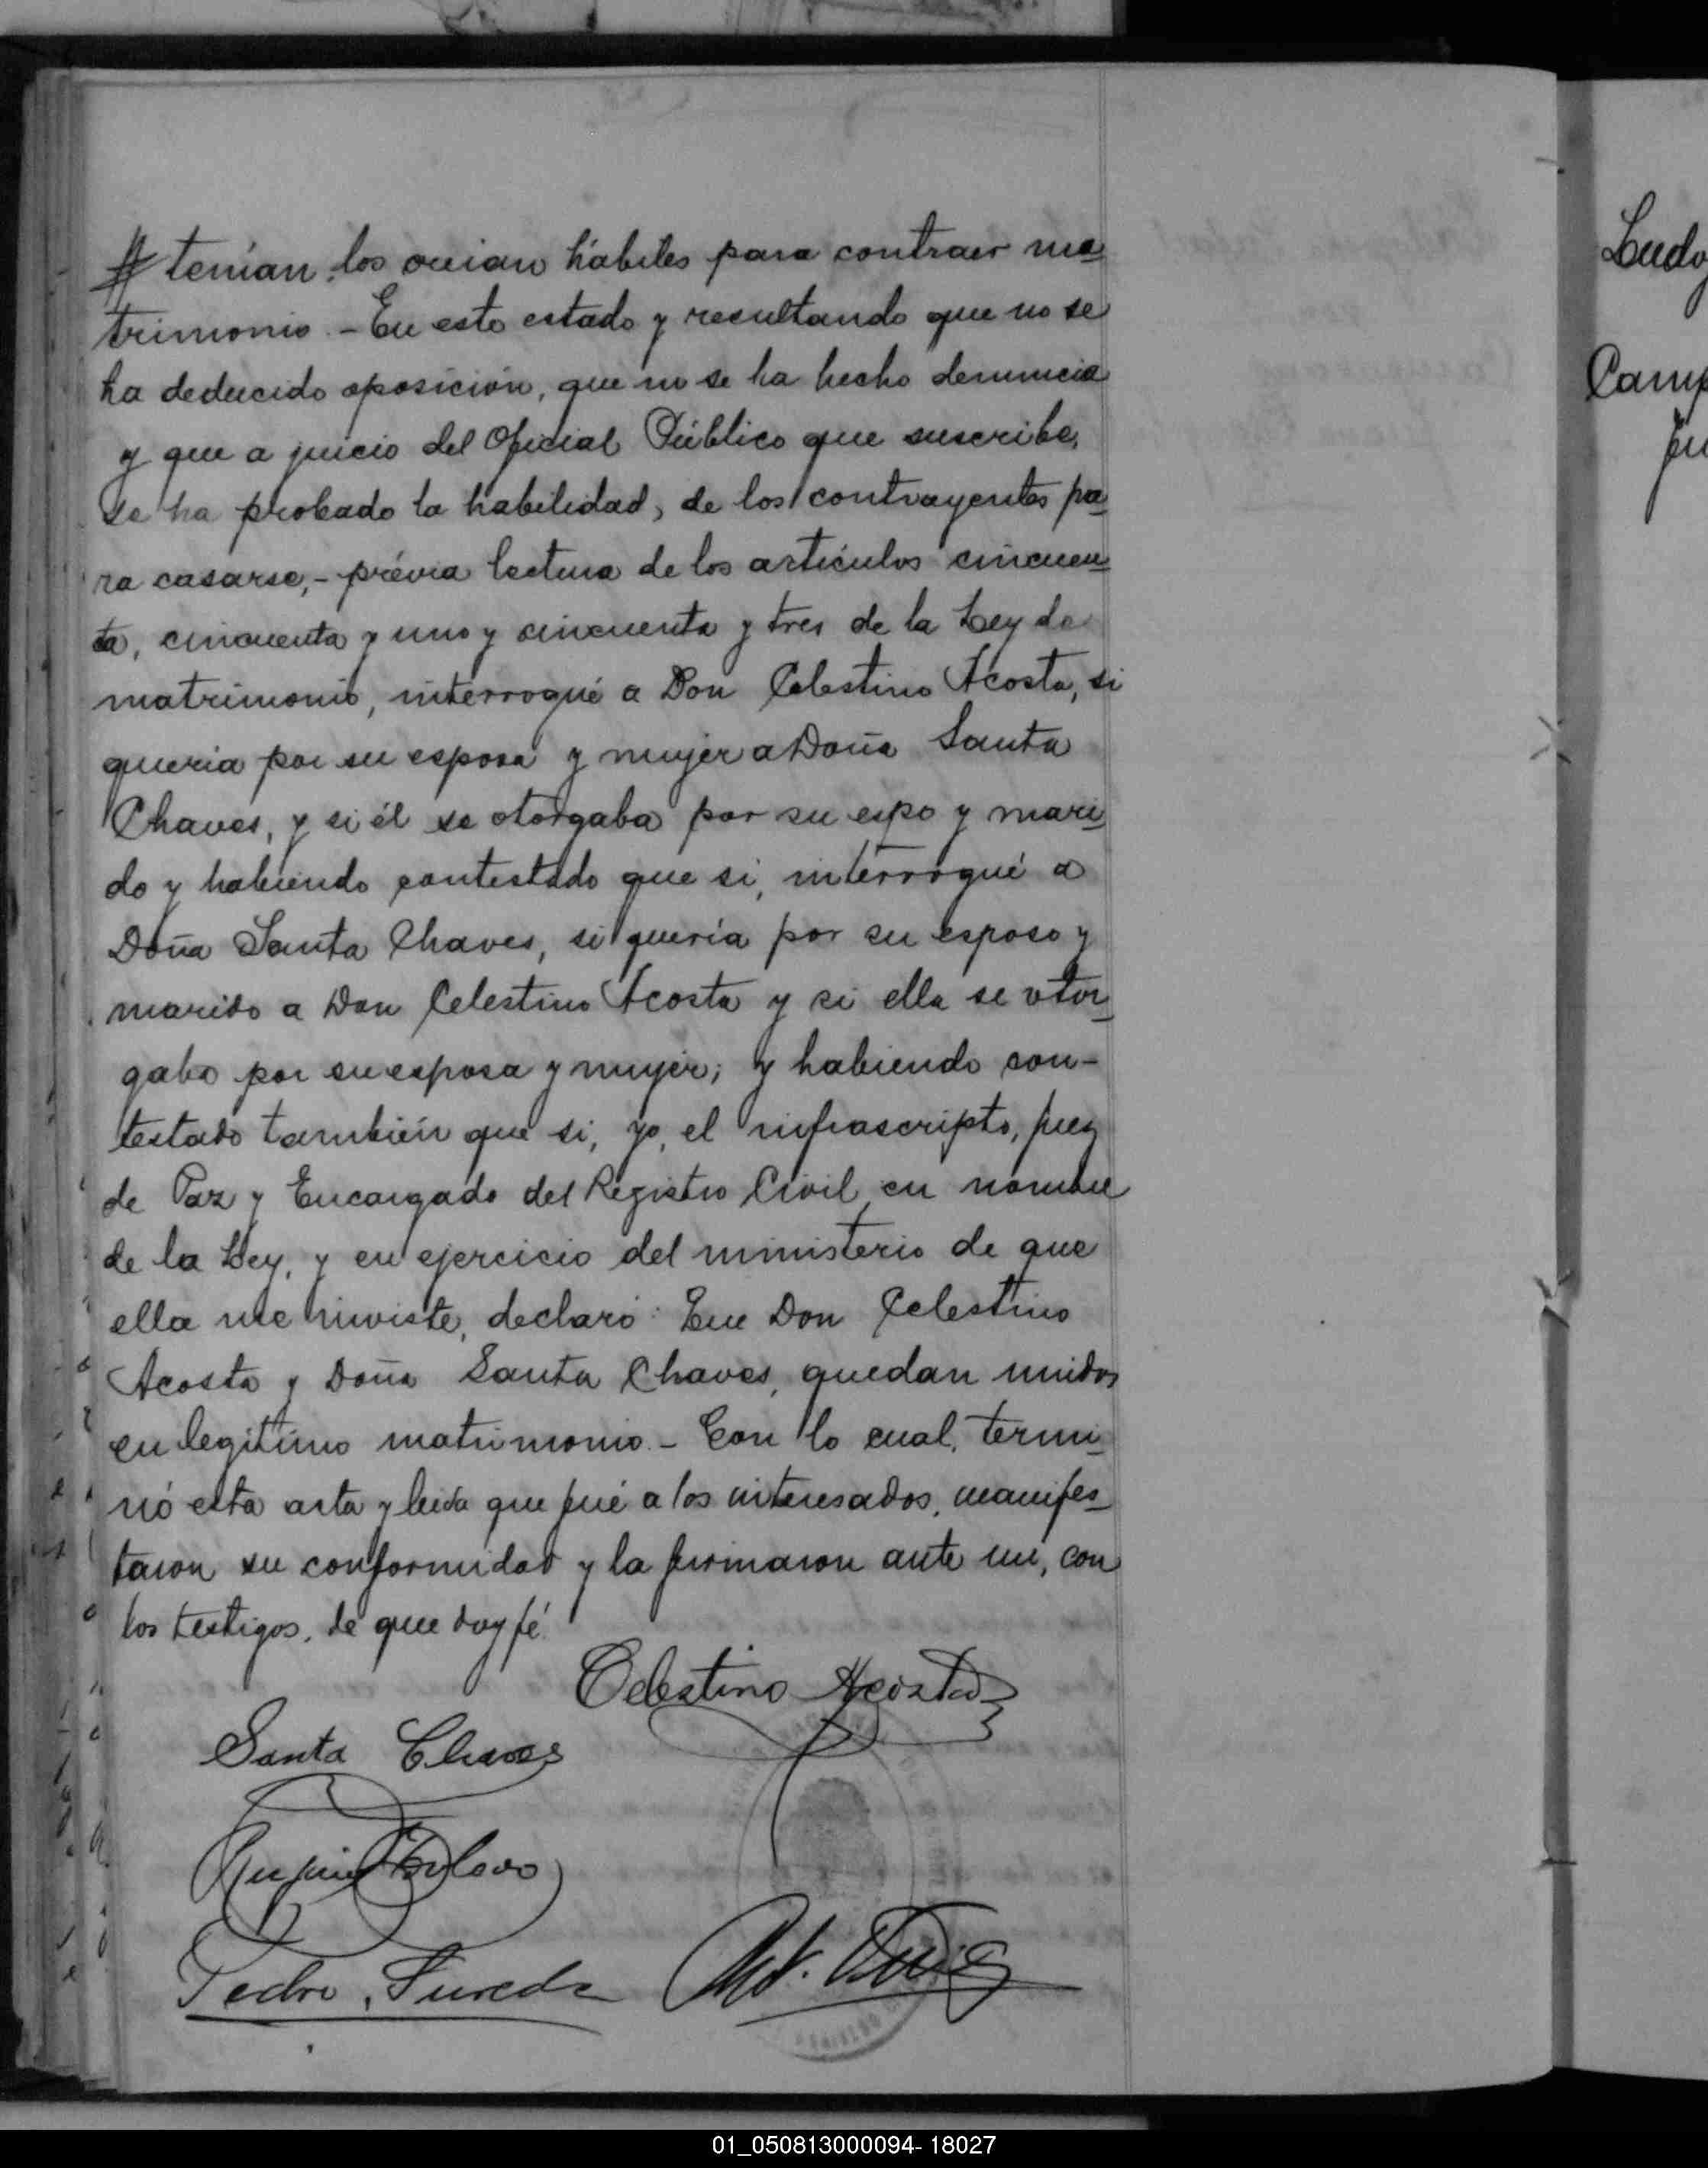 tenian, los creian hábiles para contraer ma
trimonio. - En este estado y resultando que no se
ha deducido oposición, que no se ha hecho denuncia
y que a juicio del Oficial Público que suscribe,
se ha probado la habilidad, de los contrayentes pa
ra casarse, - prévia lectura de los artículos cincuen
ta, cincuenta y uno y cincuenta y tres de la Ley de
matrimonio, interrogué a Don Celestino Acosta, si
queria por su esposa y mujer a Doña Santa
Chaves, y si él se otorgaba por su espo y mari
do y habiendo contestado que si, interrogué a
Doña Santa Chaves, si quería por su esposo y
marido a Don Celestino Acosta y si ella se otor
gaba por su esposa y mujer; y habiendo con-
testado también que si, yo, el infrascripto, Juez
de Paz y Encargado del Registro Civil, en nombre
de la Ley, y en ejercicio del ministerio de que
ella me inviste, declaro: Que Don Celestino
Acosta y Doña Santa Chaves, quedan unidos
en legitimo matrimonio. - Con lo cual, termi
nó esta acta y leida que fué a los interesados, manifes
taron su conformidad y la firmaron ante mi, con
los testigos, de que doy fé.
Celestino Acosta
Santa Chaves
Pedro Sureda
Ludo
Camp
Ju
01_050813000094- 18027